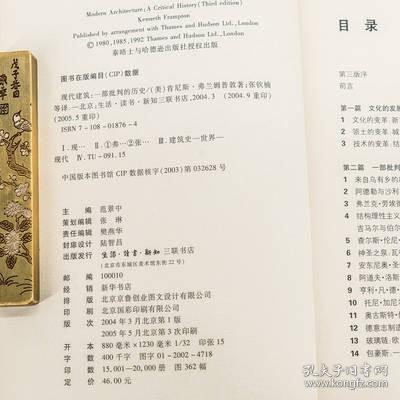 Modern Architecture: A Critical History (Third edition)
Kenneth Frampton
Published by arrangement with Thames and Hudson Ltd., London
© 1980, 1985, 1992 Thames and Hudson Ltd., London
泰晤士与哈德逊出版社授权出版
图书在版编目(CIP)数据
现代建筑:一部批判的历史/(美)肯尼斯·弗兰姆普敦著;张钦楠
等译.—北京:生活·读书·新知三联书店,2004.3 (2004.9重印)
(2005.5重印)
ISBN 7-108-01876-4
Ⅰ.现… Ⅱ.①弗…②张… Ⅲ.建筑史—世界—
现代 Ⅳ.TU-091.15
中国版本图书馆CIP数据核字(2003)第032628号
主 编 范景中
策划编辑 张琳
责任编辑 樊燕华
封扉设计 陆智昌
出版发行 生活·读书·新知三联书店
(北京市东城区美术馆东街22号)
邮 编 100010
经 销 新华书店
排 版 北京京鲁创业图文设计有限公司
印 刷 北京国彩印刷有限公司
版 次 2004年3月北京第1版
2005年5月北京第3次印刷
开 本 880毫米×1230毫米 1/32 印张15
字 数 400千字 图字01-2002-4718
印 数 15,001—20,000册 图362幅
定 价 46.00元
目录
第三版序
前言
第一篇 文化的发展
1 文化的变革:新
2 领土的变革:城
3 技术的变革:结
第二篇 一部批判
1 来自乌有乡的
2 阿德勒与沙利
3 弗兰克·劳埃德
4 结构理性主义
吉马尔与伯尔
5 查尔斯·伦尼
6 神圣之泉:瓦
7 安东尼奥·圣
8 阿道夫·洛斯
9 亨利·凡·德
10 托尼·加尼
11 奥古斯特·
12 德意志制造
13 玻璃链:欧
14 包豪斯:一
孔夫子旧书网